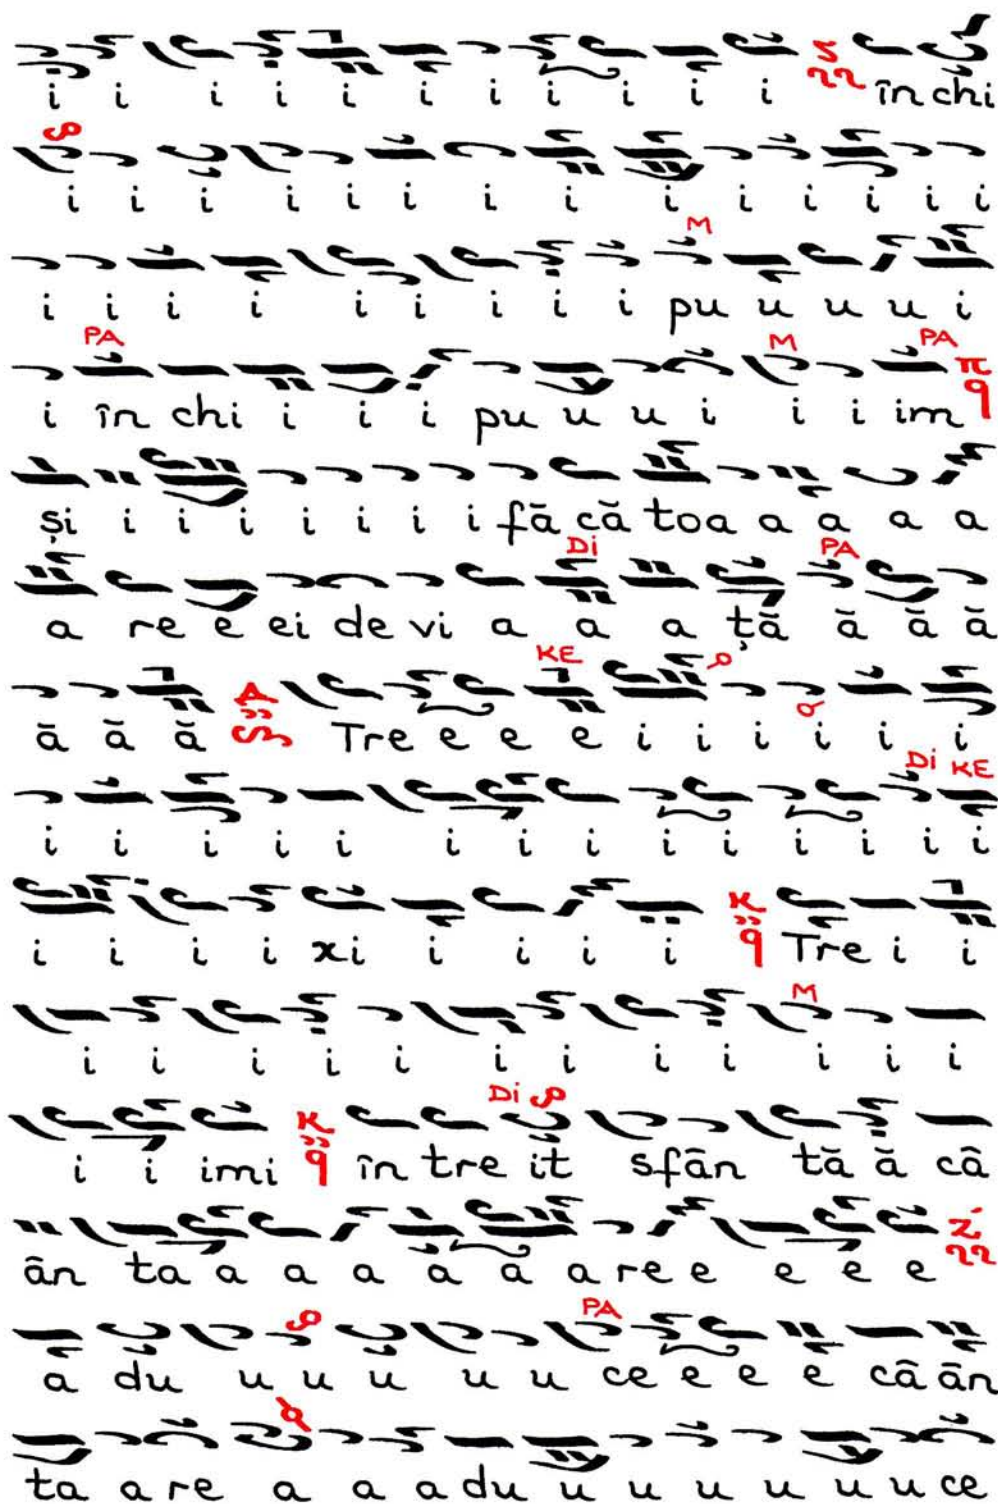 i i i i i i i i i i i în chi
i i i i i i i i i i i i i i
M
i i i i i i i i i pu u u u i
PA M PA
i în chi i i i pu u u i i i im
și i i i i i i i fă că toa a a a a
Di PA
a re e ei de vi a a a ță ă ă ă
KE
ă ă ă Tre e e e i i i i i i
Di KE
i i i i i i i i i i i i i i
i i i i xi i i i i Tre i i
M
i i i i i i i i i i i i
Di
i i imi în tre it sfân tă ă câ
ân ta a a a a a a re e e e e
PA
a du u u u u u ce e e e câ ân
ta a re a a a du u u u u u u ce